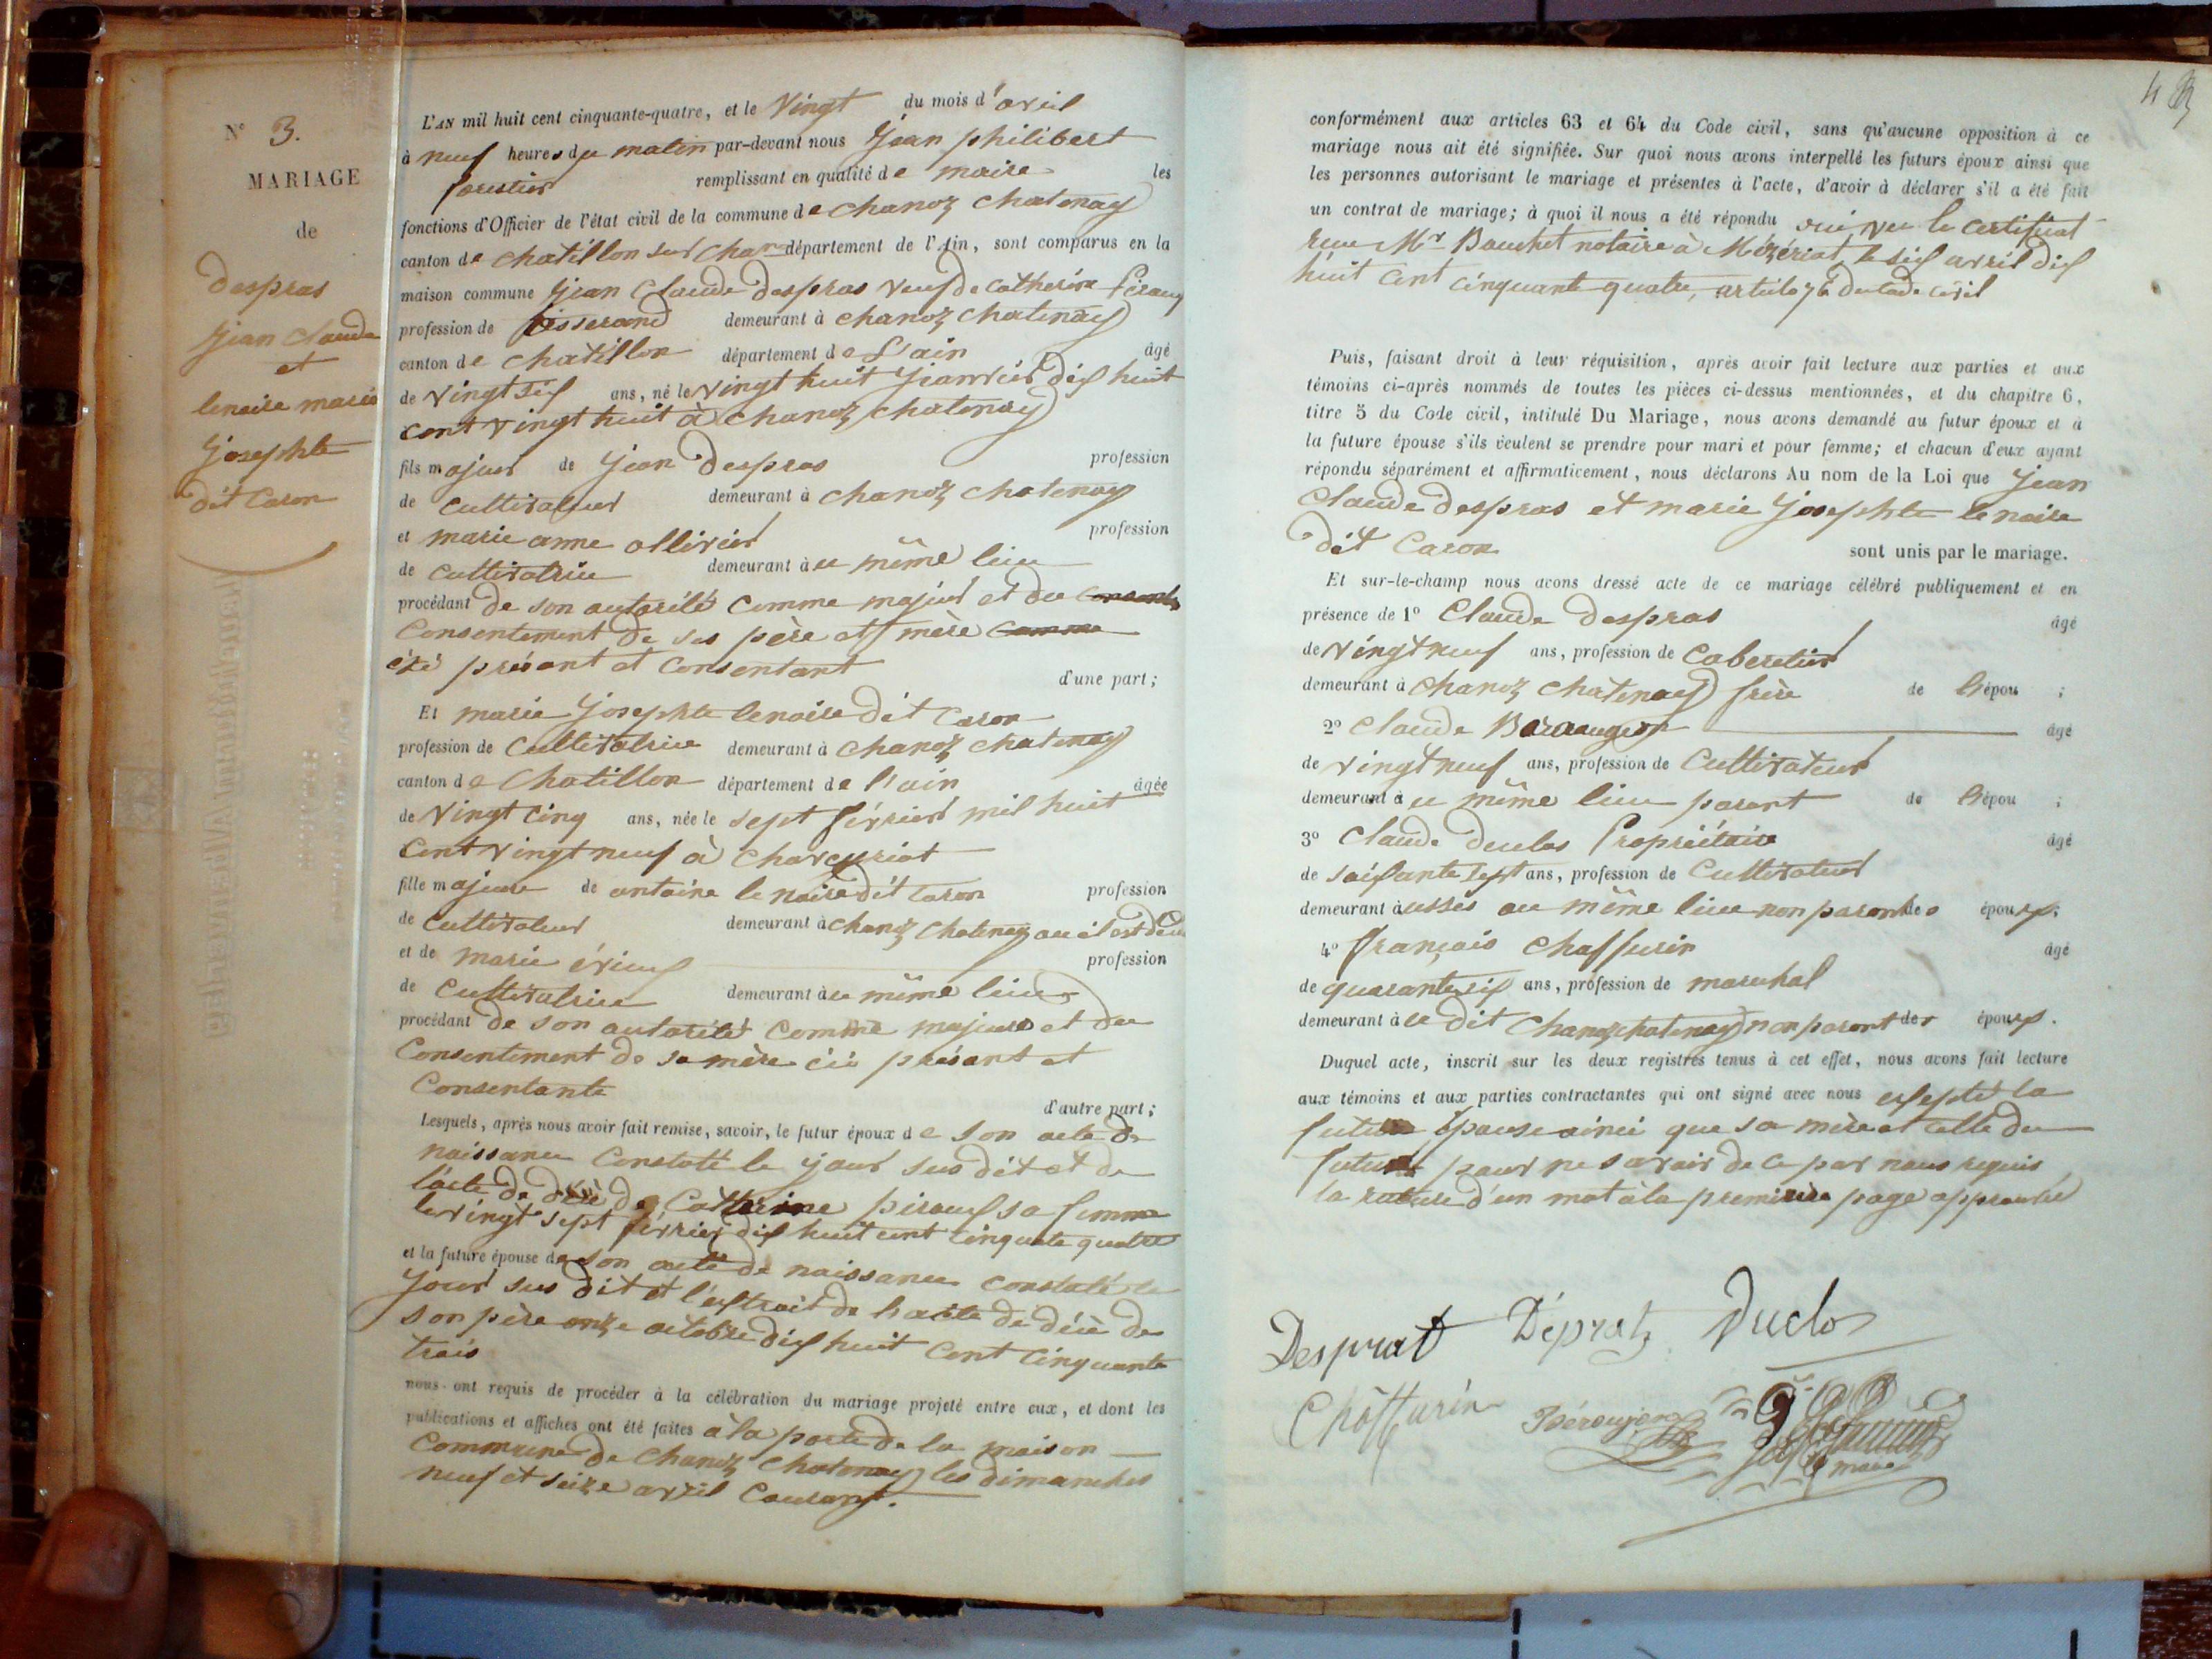 N° 3.
MARIAGE
de
despras
jean claude
et
lenoire marie
josephte
dit Caron
L'AN mil huit cent cinquante-quatre, et le Vingt du mois d'avril
à neuf heures du matin par-devant nous jean philibert
forestier remplissant en qualité de maire les
fonctions d'Officier de l'état civil de la commune de chanoz chatenay
canton de chatillon sur chan département de l'Ain, sont comparus en la
maison commune jean Claude despras veuf de catherine
profession de tisserand demeurant à chanoz chatenay
canton de chatillon département de l'ain âgé
de vingt six ans, né le vingt huit janvier dix huit
cent vingt huit à chanoz chatenay
fils majeur de jean despras profession
de cultivateur demeurant à chanoz chatenay
et marie anne ollivier profession
de cultivatrice demeurant au même lieu
procédant de son autorité comme majeur et du
Consentement de ses père et mère comme
présent et consentant d'une part;
Et marie josephte lenoire dit Caron
profession de Cultivatrice demeurant à chanoz chatenay
canton de Chatillon département de l'ain âgée
de vingt cinq ans, née le sept février mil huit
Cent vingt neuf à chaveyriat
fille majeure de antoine le noire dit Caron profession
de cultivateur demeurant à chanoz chatenay ou il est
et de marie profession
de Cultivatrice demeurant au même lieu
procédant de son autorité comme majeure et du
Consentement de sa mère présant et
Consentante
d'autre part;
Lesquels, après nous avoir fait remise, savoir, le futur époux de son acte de
naissance Constaté le jour sus dit et de
l'acte de décè de Catherine piroux sa femme
le vingt sept février dix huit cent cinquate quatre
et la future épouse de son acte de naissance constaté le
jour sus dit et l'extrait de l'acte de décè de
son père onze octobre dix huit Cent Cinquante
trois
nous ont requis de procéder à la célébration du mariage projeté entre eux, et dont les
publications et affiches ont été faites à la porte de la maison
Commune de Chanoz Chatenay les dimanches
neuf et seize avril Courant.
conformément aux articles 63 et 64 du Code civil, sans qu'aucune opposition à ce
mariage nous ait été signifiée. Sur quoi nous avons interpellé les futurs époux ainsi que
les personnes autorisant le mariage et présentes à l'acte, d'avoir à déclarer s'il a été fait
un contrat de mariage; à quoi il nous a été répondu oui vu le Certificat
reçu Mr Bouchet notaire à Mézériat le six avril dix
huit Cent Cinquante quatre, article 76 du Code civil
Puis, faisant droit à leur réquisition, après avoir fait lecture aux parties et aux
témoins ci-après nommés de toutes les pièces ci-dessus mentionnées, et du chapitre 6,
titre 5 du Code civil, intitulé Du Mariage, nous avons demandé au futur époux et à
la future épouse s'ils veulent se prendre pour mari et pour femme; et chacun d'eux ayant
répondu séparément et affirmativement, nous déclarons Au nom de la Loi que jean
Claude despras et marie josephte lenoire
dit Caron sont unis par le mariage.
Et sur-le-champ nous avons dressé acte de ce mariage célébré publiquement et en
présence de 1° Claude despras âgé
de vingt neuf ans, profession de Cabaretier
demeurant à Chanoz Chatenay frère de l'épou ;
2° Claude âgé
de vingt neuf ans, profession de Cultivateur
demeurant au même lieu parant de l'épou ;
3° Claude duclos Propriétaire âgé
de soixante sept ans, profession de Cultivateur
demeurant aussis au même lieu non parant des époux;
4° François Chaffurin âgé
de quarante six ans, profession de marechal
demeurant à ce dit Chanoz chatenay non parant des époux.
Duquel acte, inscrit sur les deux registres tenus à cet effet, nous avons fait lecture
aux témoins et aux parties contractantes qui ont signé avec nous exsepté la
future épouse ainci que sa mère et celle du
futur pour ne savoir de ce par nous requis
la rature d'un mot à la première page approuvé
Desprat Déprat Duclos
Chaffurin Béroujon
maire